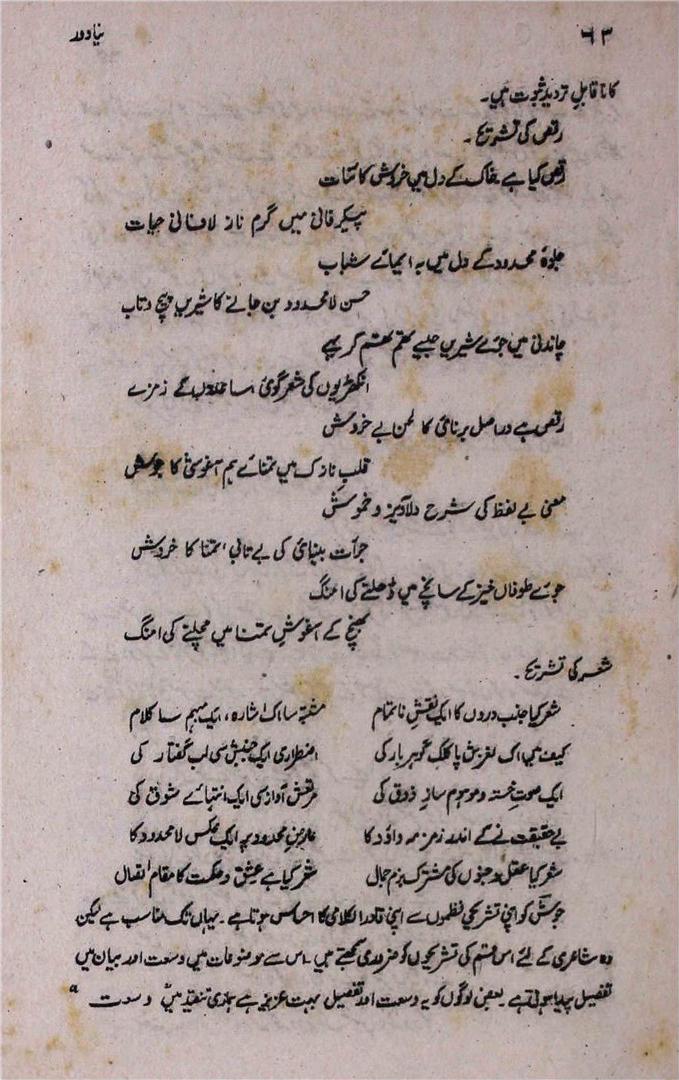 ۶۳ نیا دور
کا ناقابلِ تردید ثبوت ہیں۔
رقص کی تشریح۔
رقص کیا ہے خاک کے دل میں خروشِ کائنات
پیکرِ فانی میں گرمِ ناز لافانی حیات
جلوۂ محدود کے دل میں بہ ایمائے شباب
حسن لامحدود بن جانے کا شیریں پیچ و تاب
چاندنی میں جوئے شیریں جیسے تھم تھم کر بہے
انکھڑیوں کی شعر گوئی کے زمزمے
رقص ہے دراصل برنائی کا لحن بے خروش
قلبِ نازک میں تمنائے ہم آغوشی کا جوش
معنی بے لفظ کی شرح دلآویز و خموش
جرأت بینائی کی بے تابی، تمنا کا خروش
جوئے طوفاں خیز کے سانچے میں ڈھلنے کی امنگ
بھنچ کے آغوشِ تمنا میں مچلنے کی امنگ
شعر کی تشریح۔
شعر کیا جذب دروں کا ایک نقشِ ناتمام مشتبہ سا اک اشارہ، ایک مبہم سا کلام
کیف میں اک لغزشِ پا کلکِ گوہر بار کی اضطراری ایک جنبش سی لبِ گفتار کی
ایک صوتِ خستہ و موہوم سازِ ذوق کی مرتعش آواز سی ایک انتہائے شوق کی
بے حقیقت نے کے اندر زمزمہ داؤد کا عارضِ محدود پر ایک عکس لامحدود کا
شعر کیا عقل و جنوں کی مشترک بزم جمال شعر کیا ہے عشق و حکمت کا مقامِ اتصال
جوشؔ کو اپنی تشریحی نظموں سے اپنی قادر الکلامی کا احساس ہوتا ہے۔ یہاں تک مناسب ہے لیکن
وہ شاعری کے لئے اس قسم کی تشریحوں کو ضروری سمجھتے ہیں۔ اس سے موضوعات میں وسعت اور بیان میں
تفصیل پیدا ہوتی ہے۔ بعض لوگوں کو یہ وسعت اور تفصیل بہت عزیز ہے ہماری تنقید میں "وسعت"